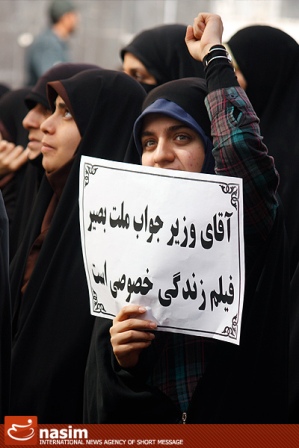 آقای وزیر جواب ملت بصیر
فیلم زندگی خصوصی است
nasim
INTERNATIONAL NEWS AGENCY OF SHORT MESSAGE